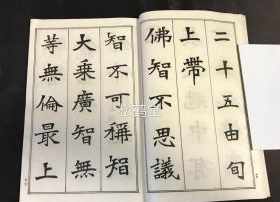 二十五由旬
上帶
佛智不思議
智不可稱智
大乘廣智無
等無倫最上